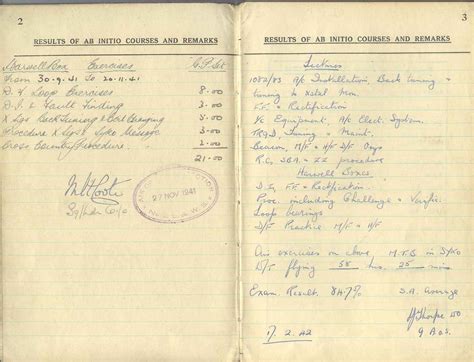 2
RESULTS OF AB INITIO COURSES AND REMARKS
Harwell Box Exercises G.P. Set
From 30-9-41 to 20-11-41
D.F. Loop Exercises 8.00
D.I. & Fault Finding 3.00
X Sgs Back Tuning & Bearing 5.00
Procedure X Sgs & Syko Message 3.00
Cross Country Procedure 2.00
21.00
27 NOV 1941
3
RESULTS OF AB INITIO COURSES AND REMARKS
Lectures
1082/83 A/c Installation, Back tuning &
tuning to Xstal Mon.
F.F. & Rectification
Vc Equipment, A/c Elect. System.
Tuning & Maint.
Beacon, M/F & H/F D/F Orgs
R.C. S.B.A. & ZZ procedure
Harwell Boxes
D.I, FF & Rectification.
Proc. including Challenge & Verific.
Loop bearings
D/F Practice M/F & H/F
Air exercises as above M.T.B in
D/F flying 58 hrs. 25 mins.
Exam Result. 84.7% S.A. average
17.2.42